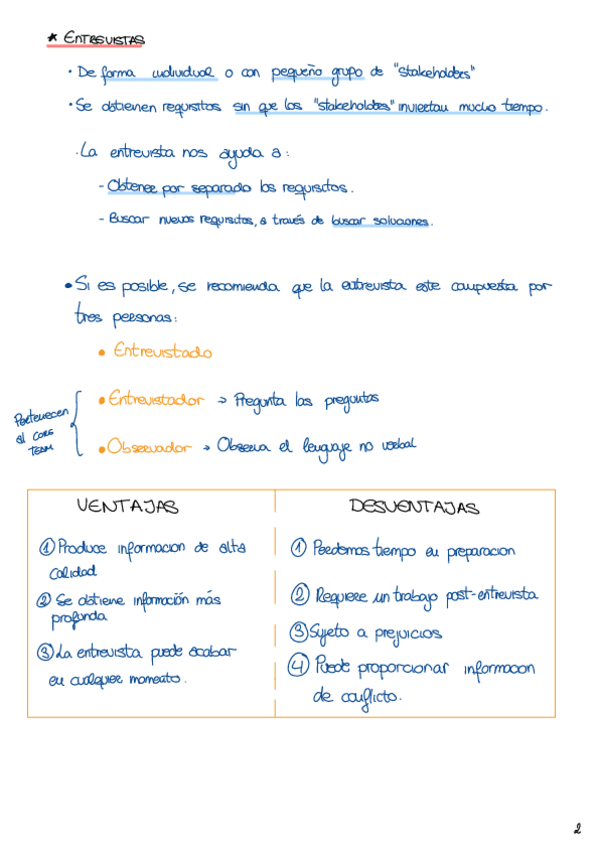 * ENTREVISTAS
• De forma individual o con pequeño grupo de "stakeholders"
• Se obtienen requisitos sin que los "stakeholdes" inviertan mucho tiempo.
· La entrevista nos ayuda a:
- Obtener por separado los requisitos.
- Buscar nuevos requisitos, a través de buscar soluciones.
• Si es posible, se recomienda que la entrevista este compuesta por
tres personas:
• Entrevistado
Pertenecen
al CORE
TEAM
• Entrevistador → Pregunta las preguntas
• Observador → Observa el lenguaje no verbal
VENTAJAS
① Produce informacion de alta
calidad
② Se obtiene información más
profunda
③ La entrevista puede acabar
en cualquier momento.
DESVENTAJAS
① Perdemos tiempo en preparacion
② Requiere un trabajo post-entrevista
③ Sujeto a prejuicios
④ Puede proporcionar informacion
de conflicto.
2